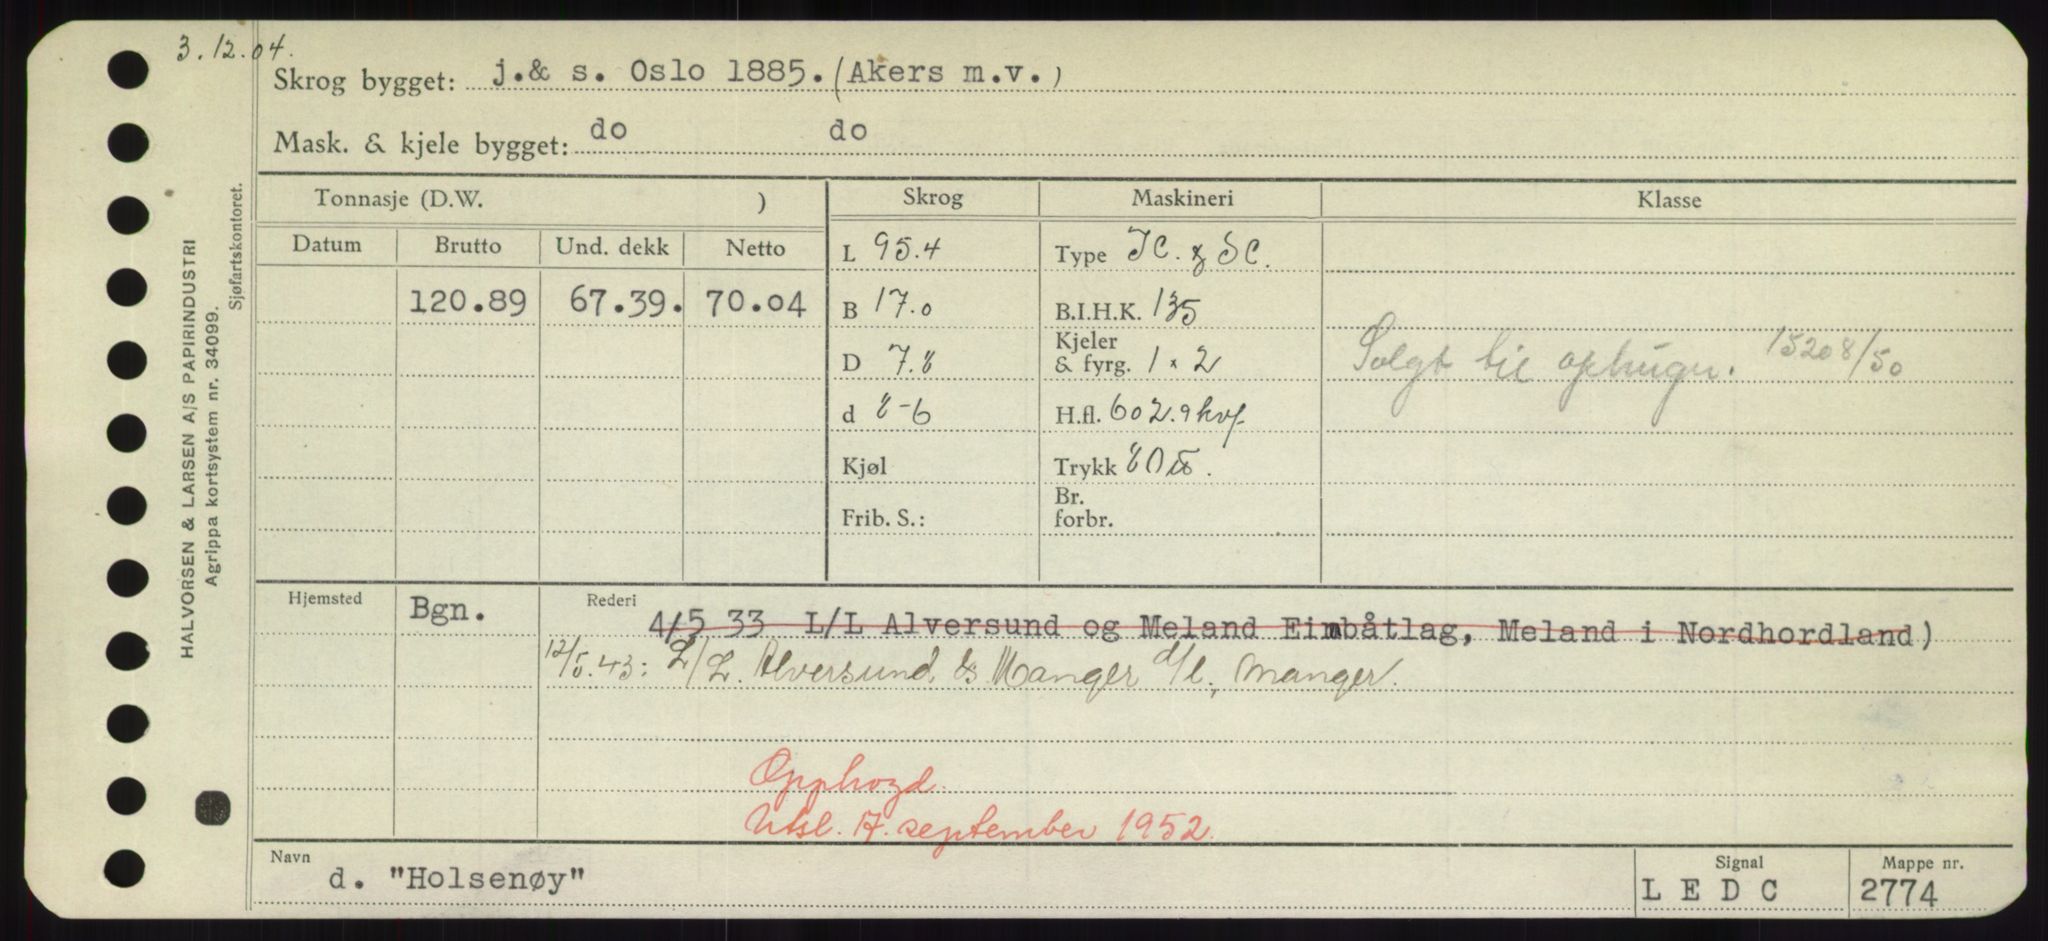 3.12.04.
Skrog bygget: j.& s. Oslo 1885. (Akers m.v.)
Mask. & kjele bygget: do do
HALVORSEN & LARSEN A/S PAPIRINDUSTRI
Agrippa kortsystem nr. 34099.
Sjøfartskontoret.
Tonnasje (D.W. ) Skrog Maskineri Klasse
Datum Brutto Und. dekk Netto
L 95.4 Type
120.89 67.39. 70.04
B 17.0 B.I.H.K. 135
D 7.8 Kjeler & fyrg. 1 × 2
Solgt til ophugn. 15208/50
d 8-6 H.fl. 602.9 kvf
Kjøl Trykk 80
Frib. S.: Br. forbr.
Hjemsted Bgn. Rederi
4/5 33 L/L Alversund og Meland Eimbåtlag, Meland i Nordhordland)
12/5.43: L/L. Alversund & Manger d/l., Manger.
Opphogd.
Utsl. 17. september 1952.
Navn d. "Holsenøy" Signal L E D C Mappe nr. 2774